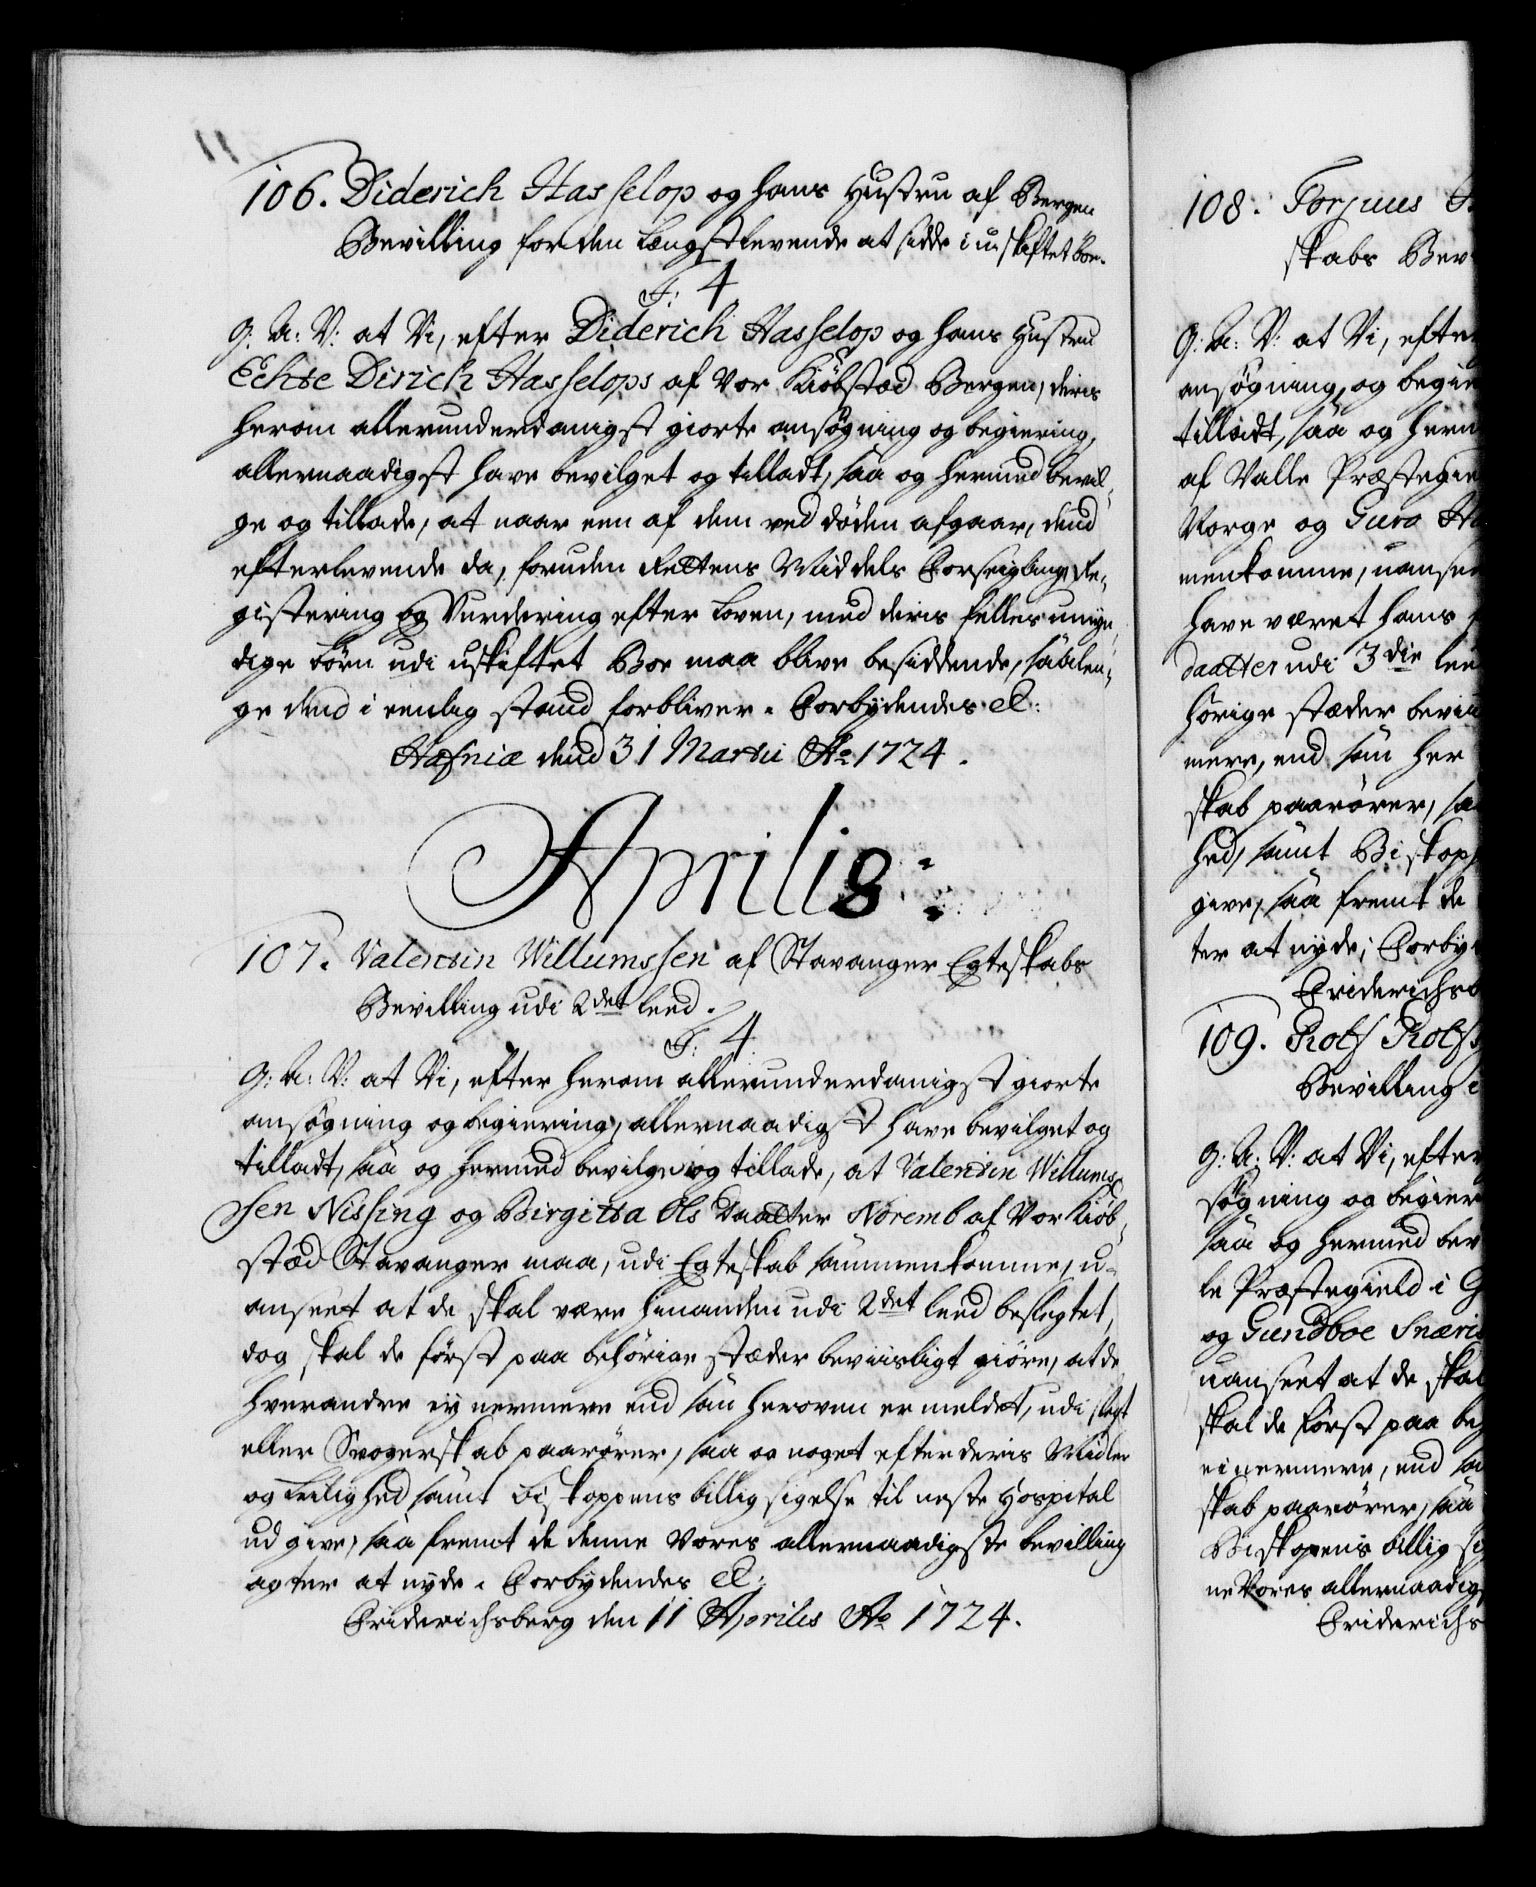 106. Diderich Hasselop og hans Hustru af Bergen
Bevilling for den Længstlevende at sidde i uskiftet Boe.
F: 4
G: A: V: at Vi, efter Diderich Hasselop og hans Hustru
Echte Dirich Hasselops af Vor Kiöbstæd Bergen, deris
herom allerunderdanigst giorte ansøgning og begiering,
allernaadigst have bevilget og tilladt, saa og hermed bevil-
ge og tillade, at naar een af dem ved døden afgaar, dend
efterlevende da, foruden Rettens Middels Forseigling, Re-
gistering og Vurdering efter Loven, med deris felles umyn-
dige börn udi uskiftet Boe maa blive besiddende, saalen-
ge dend i eenlig stand forbliver. Forbydendes etc:
Hafniæ dend 31 Martii Ao 1724.
Aprilis:
107. Valentin Willumssen af Stavanger Egteskabs
Bevilling udi 2det leed.
F: 4
G: A: V: at Vi, efter herom allerunderdanigst giorte
ansøgning og begiering, allernaadigst have bevilget og
tilladt, saa og hermed bevilge og tillade, at Valentin Willums-
sen Nissing og Birgitta Ols Daatter Noremb af Vor Kiöb-
stæd Stavanger maa, udi Egteskab sammenkomme, u-
anseet at de skal være hinanden udi 2det leed beslegtet,
dog skal de først paa behørige stæder beviisligt giöre, at de
hverandre ey nermere end som heroven er meldet, udi slegt
eller Svogerskab paarører, saa og noget efter deris Midler
og Leilighed samt Biskoppens billig sigelse til neste Hospital
udgive, saa fremt de denne Vores allernaadigste bevilling
agter at nyde. Forbydendes etc:
Friderichsberg den 11 Aprilis Ao 1724.
108. Torjuus
skabs Bev
G: A: V: at Vi, efter
ansøgning, og begie
tilladt, saa og herm
af Valle Præstegie
Norge og Guro
menkomme, uansee
have været hans
daatter udi 3die lee
hörige stæder bevii
mere, end som her
skab paarører, saa
hed, samt Biskopp
give, saa fremt de
ter at nyde; Forby
Friderichsb
109. Rolf Rolfs
Bevilling
G: A: V: at Vi, efter
søgning og begier
saa og hermed bev
le Præstegield i
og Gundboe Snæris
uanseet at de skal
skal de først paa be
ei nermere, end so
skab paarører, saa
Biskopens billig si
ne Vores allernaadig
Friderichs